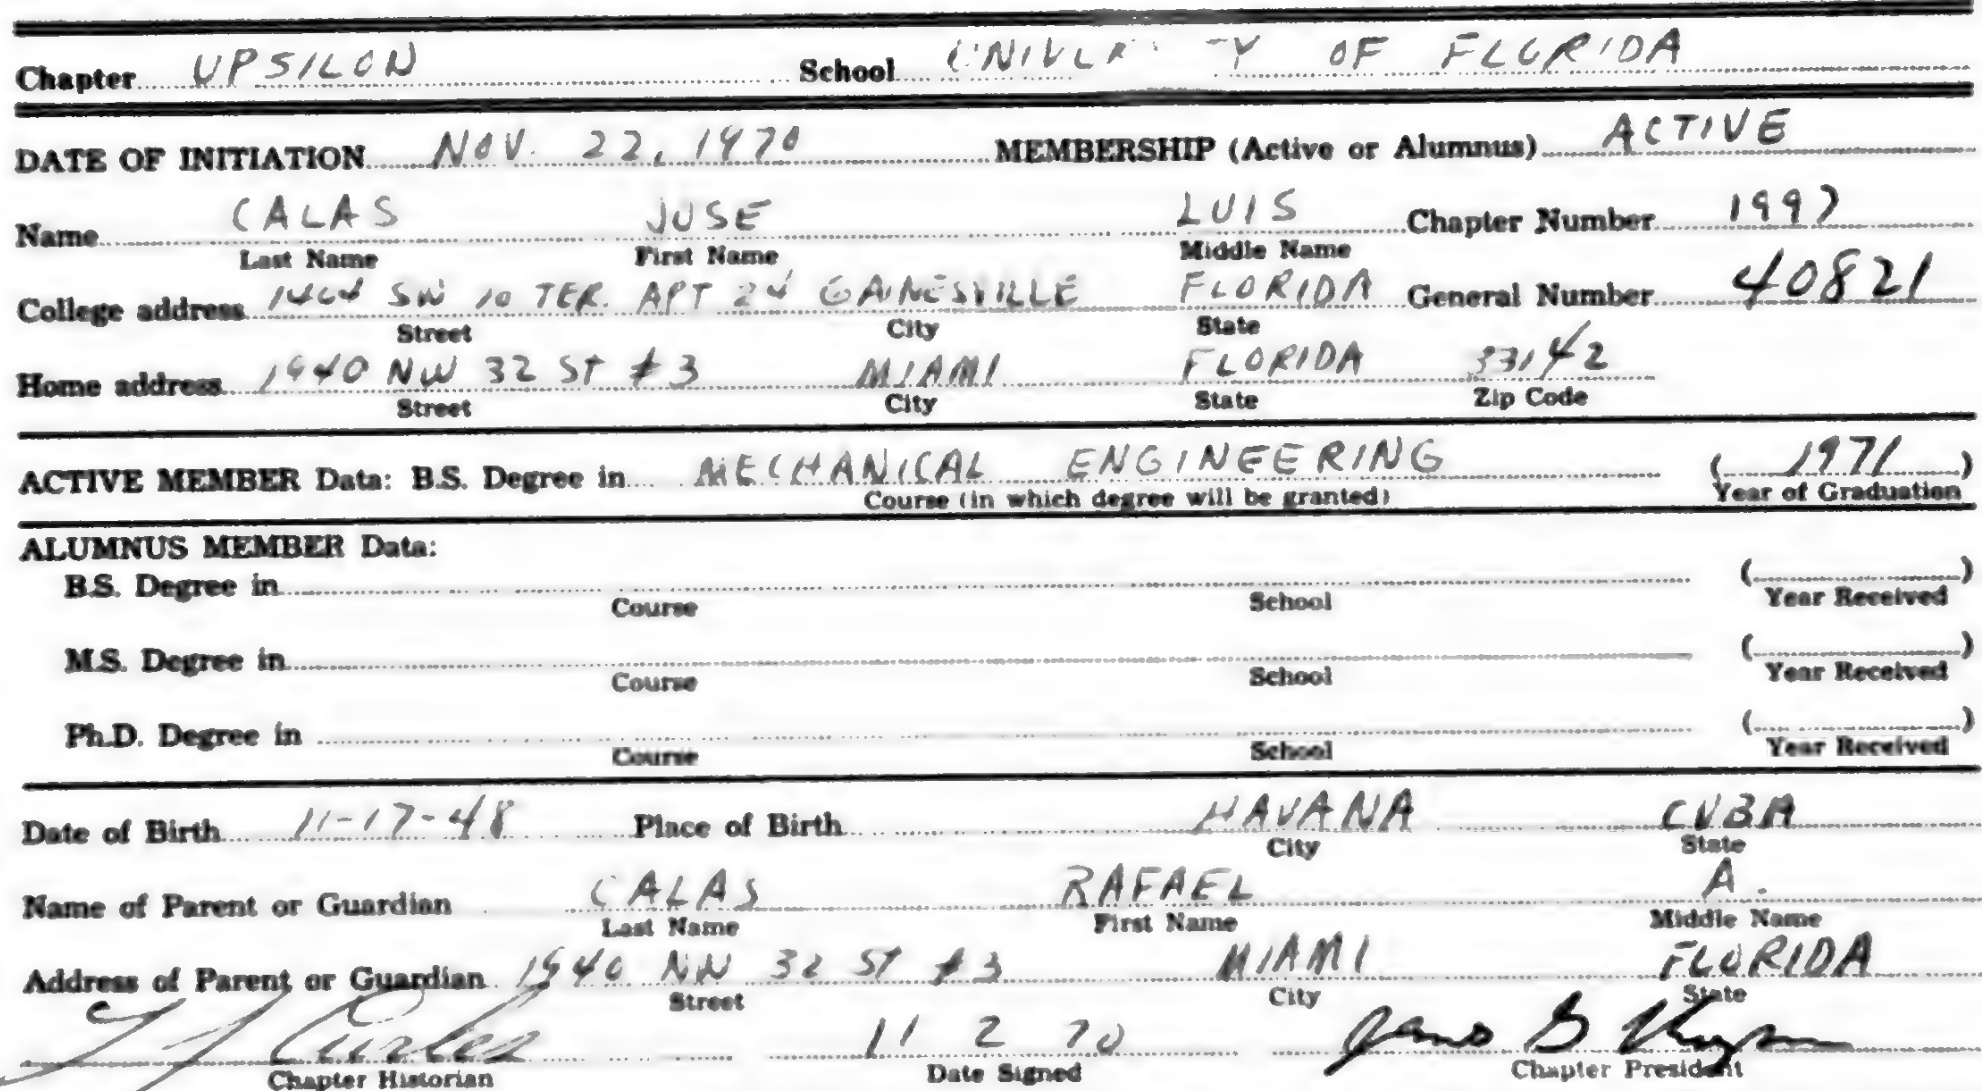 Chapter UPSILON School OF FLORIDA
DATE OF INITIATION NOV. 22, 1970 MEMBERSHIP (Active or Alumnus) ACTIVE
Name CALAS JOSE LUIS Chapter Number
Last Name First Name Middle Name
College address SW 10 TER. APT 24 GAINESVILLE FLORIDA General Number 40821
Street City State
Home address 1940 NW 32 ST #3 MIAMI FLORIDA 33142
Street City State Zip Code
ACTIVE MEMBER Data: B.S. Degree in MECHANICAL ENGINEERING (1971)
Course (in which degree will be granted) Year of Graduation
ALUMNUS MEMBER Data:
B.S. Degree in ( )
Course School Year Received
M.S. Degree in ( )
Course School Year Received
Ph.D. Degree in ( )
Course School Year Received
Date of Birth 11-17-48 Place of Birth HAVANA CUBA
City State
Name of Parent or Guardian CALAS RAFAEL A.
Last Name First Name Middle Name
Address of Parent or Guardian 1940 NW 32 ST #3 MIAMI FLORIDA
Street City State
11 2 70
Chapter Historian Date Signed Chapter President